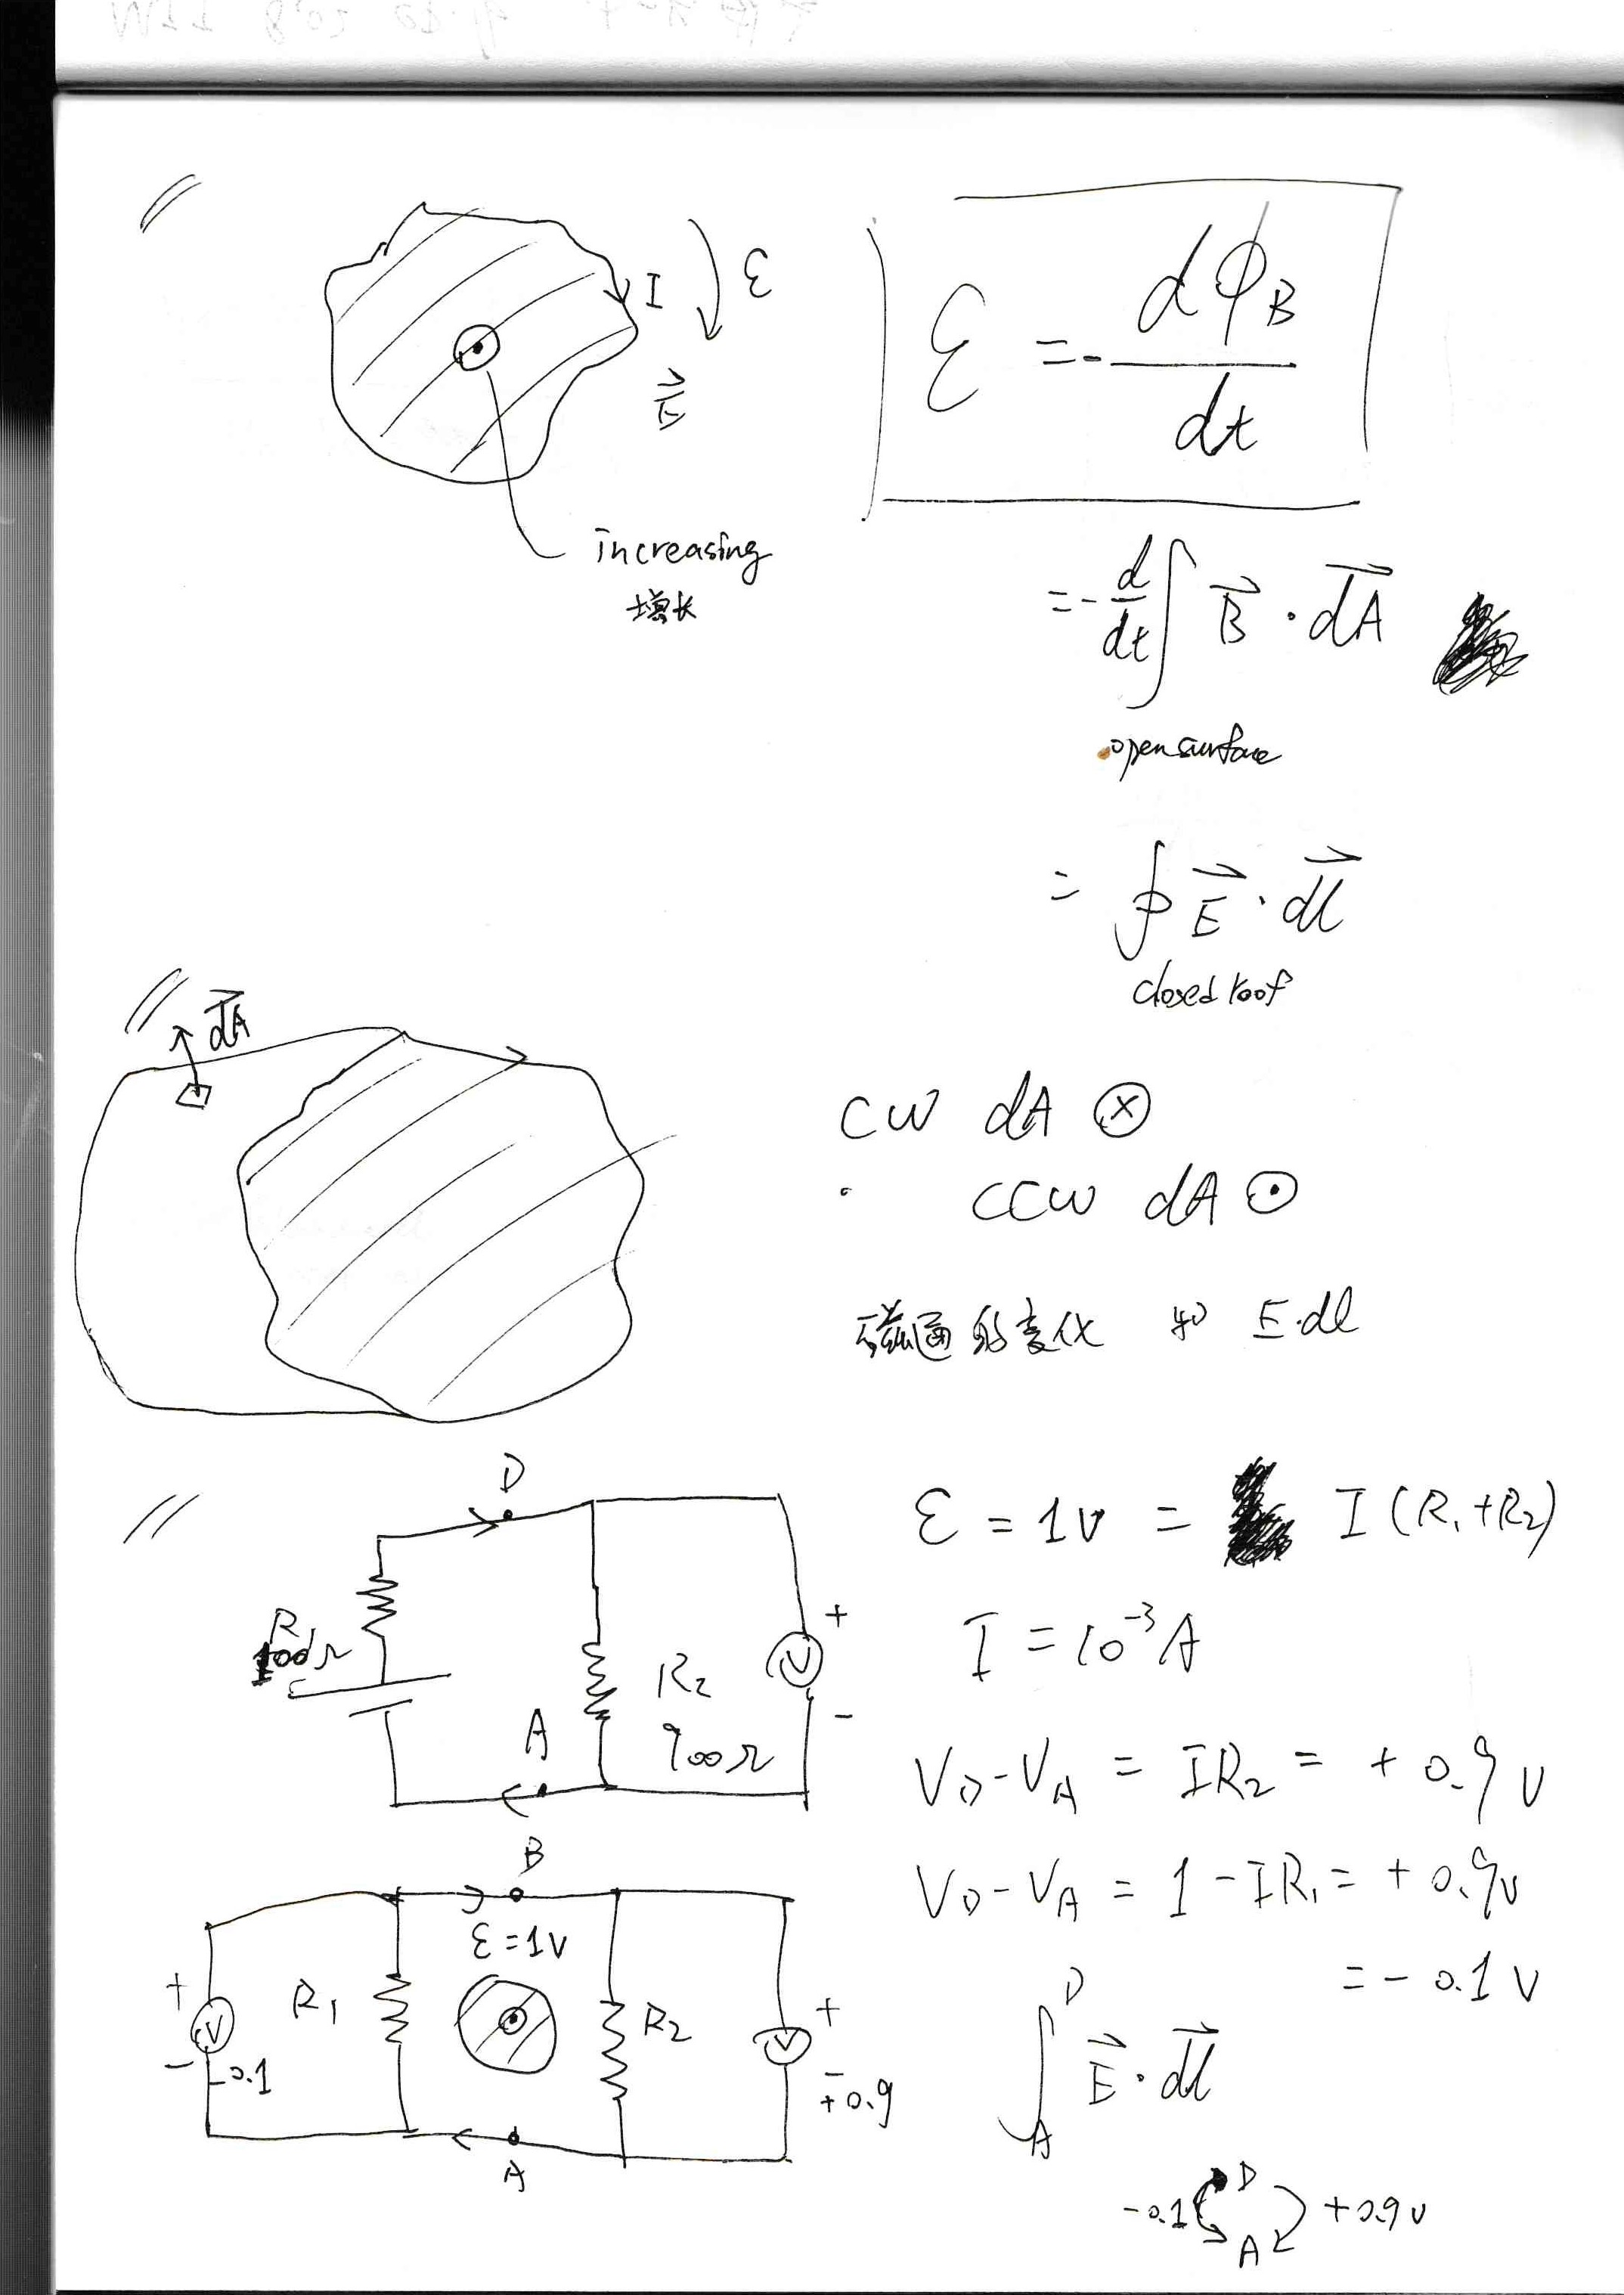 I ε
E⃗
increasing
增长
ε = - dϕB / dt
= - d/dt ∫ B⃗ · dA⃗
open surface
= ∮ E⃗ · dl⃗
closed roof
dA⃗
CW dA ⊗
CCW dA ⊙
磁通的变化 和 E·dl
D
R1
100Ω
A
R2
900Ω
V
+
-
ε = 1V = I(R1+R2)
I = 10⁻³A
VD-VA = IR2 = +0.9V
VD-VA = 1-IR1 = +0.9V
= -0.1V
B
ε=1V
+
V
-
-0.1
R1
R2
+
V
-
+0.9
A
∫ D A E⃗ · dl⃗
-0.1 D +0.9V
A